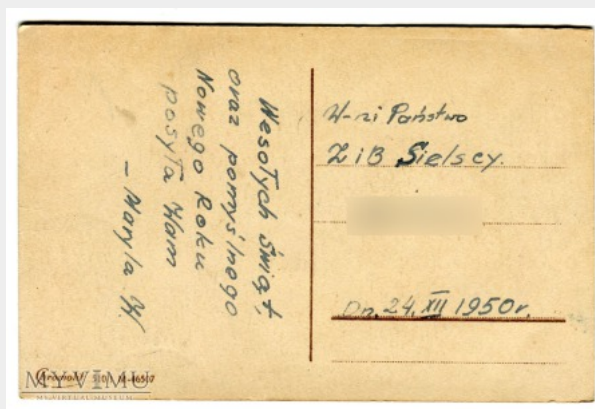 Wesołych Świąt,
oraz pomyślnego
Nowego Roku
posyła Wam
– Maryla W.
W-ni Państwo
Z i B Sielscy.
Dn. 24. XII 1950r.
MYVIMU
MY VIRTUAL MUSEUM